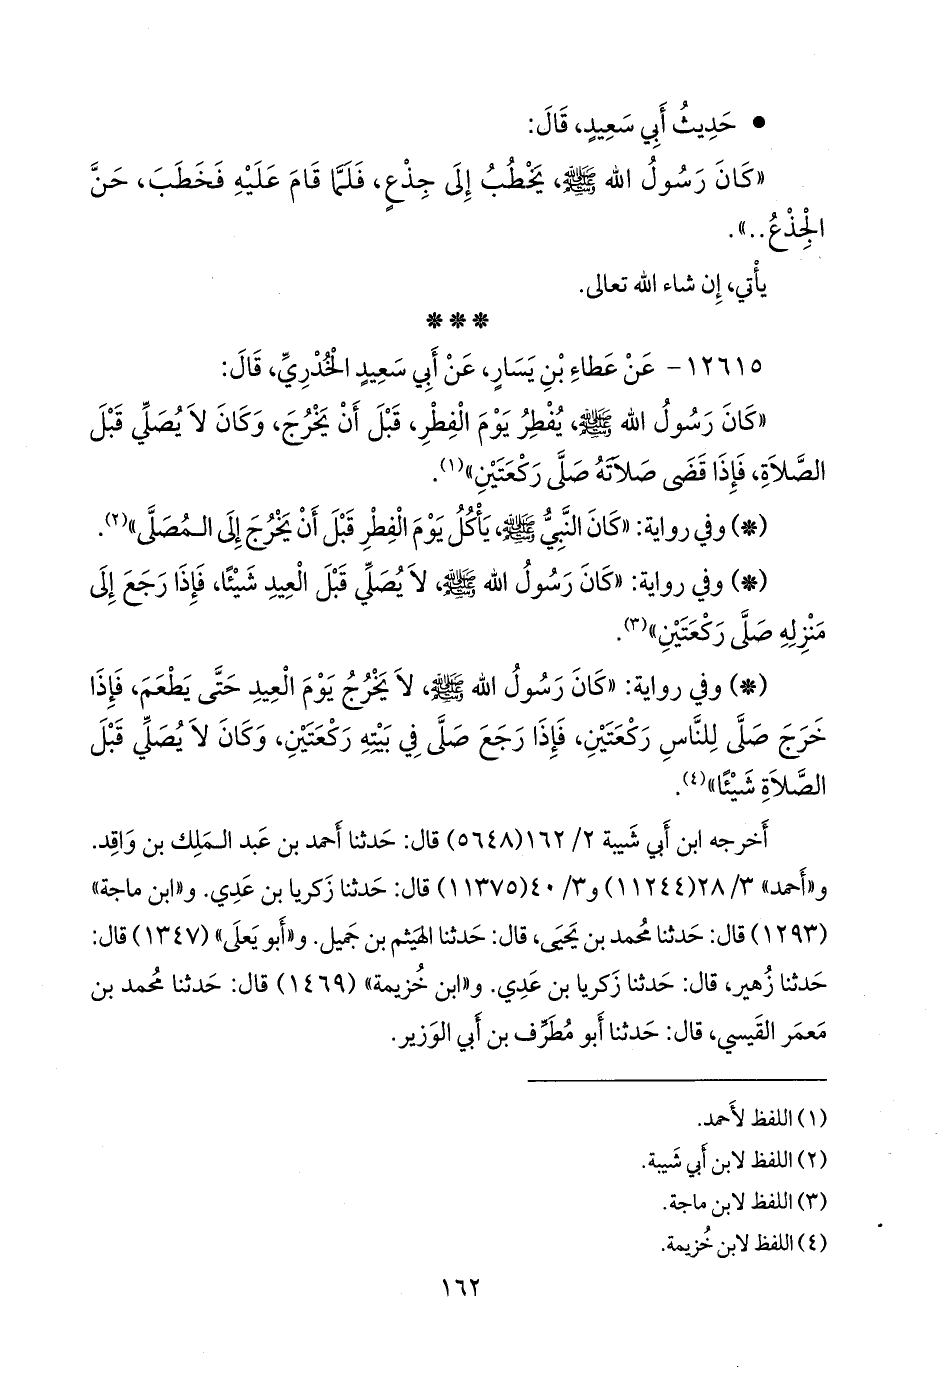 • حَدِيثُ أَبِي سَعِيدٍ، قَالَ:
«كَانَ رَسُولُ الله ﷺ، يَخْطُبُ إِلَى جِذْعٍ، فَلَمَّا قَامَ عَلَيْهِ فَخَطَبَ، حَنَّ
الْجِذْعُ..».
يأْتي، إِن شاء الله تعالى.
* * *
١٢٦١٥- عَنْ عَطَاءِ بْنِ يَسَارٍ، عَنْ أَبِي سَعِيدٍ الْخُدْرِيِّ، قَالَ:
«كَانَ رَسُولُ الله ﷺ، يُفْطِرُ يَوْمَ الْفِطْرِ، قَبْلَ أَنْ يَخْرُجَ، وَكَانَ لاَ يُصَلِّي قَبْلَ
الصَّلاَةِ، فَإِذَا قَضَى صَلاَتَهُ صَلَّى رَكْعَتَيْنِ»(١).
(*) وفي رواية: «كَانَ النَّبِيُّ ﷺ، يَأْكُلُ يَوْمَ الْفِطْرِ قَبْلَ أَنْ يَخْرُجَ إِلَى الـمُصَلَّى»(٢).
(*) وفي رواية: «كَانَ رَسُولُ الله ﷺ، لاَ يُصَلِّي قَبْلَ الْعِيدِ شَيْئًا، فَإِذَا رَجَعَ إِلَى
مَنْزِلِهِ صَلَّى رَكْعَتَيْنِ»(٣).
(*) وفي رواية: «كَانَ رَسُولُ الله ﷺ، لاَ يَخْرُجُ يَوْمَ الْعِيدِ حَتَّى يَطْعَمَ، فَإِذَا
خَرَجَ صَلَّى لِلنَّاسِ رَكْعَتَيْنِ، فَإِذَا رَجَعَ صَلَّى فِي بَيْتِهِ رَكْعَتَيْنِ، وَكَانَ لاَ يُصَلِّي قَبْلَ
الصَّلاَةِ شَيْئًا»(٤).
أَخرجه ابن أَبي شَيبة ٢/ ١٦٢(٥٦٤٨) قال: حَدثنا أَحمد بن عَبد الـمَلِك بن وَاقِد.
و«أَحمد» ٣/ ٢٨(١١٢٤٤) و٣/ ٤٠(١١٣٧٥) قال: حَدثنا زَكريا بن عَدِي. و«ابن ماجة»
(١٢٩٣) قال: حَدثنا مُحمد بن يَحيَى، قال: حَدثنا الهَيثم بن جَميل. و«أَبو يَعلَى» (١٣٤٧) قال:
حَدثنا زُهير، قال: حَدثنا زَكريا بن عَدِي. و«ابن خُزيمة» (١٤٦٩) قال: حَدثنا مُحمد بن
مَعمَر القَيسي، قال: حَدثنا أَبو مُطَرِّف بن أَبي الوَزير.
(١) اللفظ لأَحمد.
(٢) اللفظ لابن أَبي شَيبة.
(٣) اللفظ لابن ماجة.
(٤) اللفظ لابن خُزيمة.
١٦٢